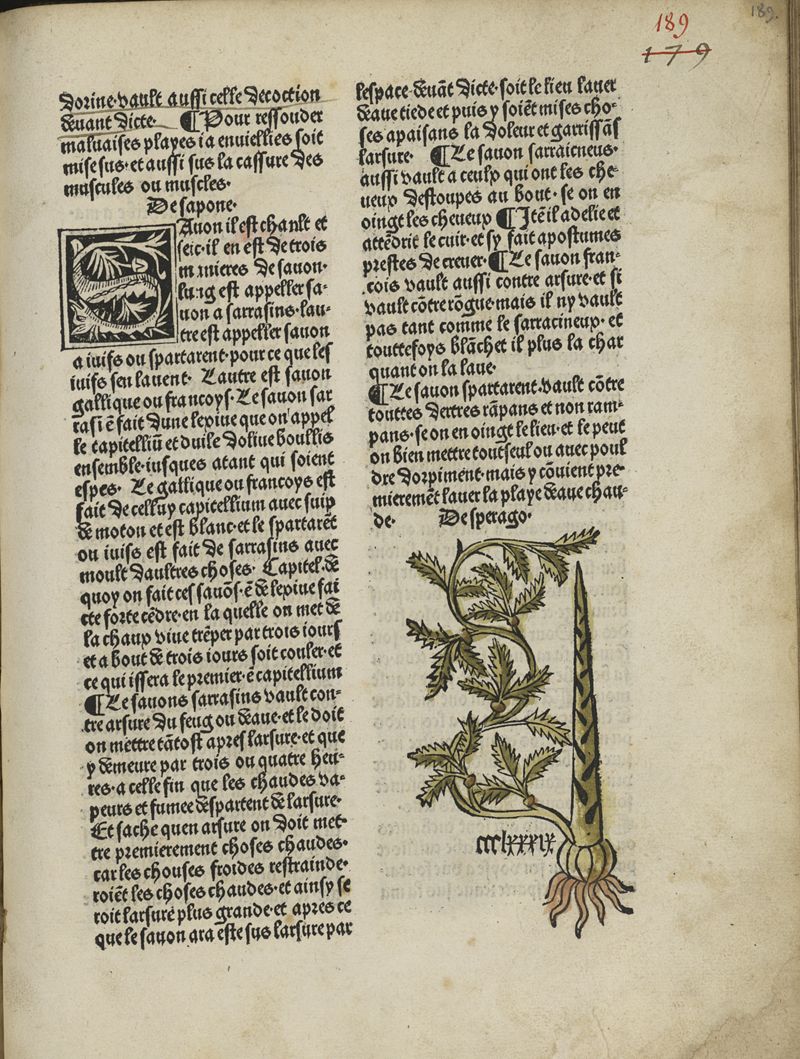 189
189.
179
dorine·vault aussi celle decoction
deuant dicte· ¶Pour ressouder
maluaises playes ia enuiellies soit
mise sus·et aussi sus la cassure des
muscules ou muscles·
De sapone·
Auon il est chault et
seic·il en est de trois
manieres de sauon·
lung est appeller sa-
uon a sarrasins·lau-
tre est appeller sauon
a iuifs ou spartarent·pour ce que les
iuifs sen lauent· Lautre est sauon
gallique ou francoys·Le sauon sar
rasi ē fait dune lexiue que on appel
le capitelliū et duile doliue boullis
ensemble·iusques atant qui soient
espes· Le gallique ou francoys est
fait de celluy capitellium auec suip
de moton et est blanc·et le spartarēt
ou iuifs est fait de sarrasins auec
moult daultres choses· Capitel·de
quoy on fait ces sauōs·ē de lexiue fai
cte forte cēdre·en la quelle on met de
la chaux viue trēper par trois iours
et a bout de trois iours soit couler·et
ce qui issera le premier·ē capitellium
¶Le sauons sarrasins vault con-
tre arsure du feug ou deaue·et le doit
on mettre tātost apres larsure·et que
y demeure par trois ou quatre heu-
res·a celle fin que les chaudes va-
peurs et fumee despartent de larsure·
Et sache quen arsure on doit met-
tre premierement choses chaudes·
car les chouses froides restrainde-
roiēt les choses chaudes·et ainsy se
roit larsure plus grande·et apres ce
que le sauon ara este sus larsure par
lespace deuāt dicte·soit le lieu lauer
deaue tiede et puis y soiēt mises cho-
ses apaisans la doleur et garrissās
larsure· ¶Le sauon sarraicneus·
aussi vault a ceulx qui ont les che
ueux destoupes au bout·se on en
oingt les cheueux ¶Itē il adelie et
attēdrit le cuir·et sy fait apostumes
prestes de creuer·¶Le sauon fran-
cois vault aussi contre arsure·et si
vault cōtre rōgue·mais il ny vault
pas tant comme le sarracineux· et
touttefoys blāchet il plus la char
quant on la laue·
¶Le sauon spartarent·vault cōtre
touttes dertres rāpans et non ram-
pans·se on en oingt le lieu·et le peut
on bien mettre tout seul ou auec poul
dre dorpiment·mais y cōuient pre-
mieremēt lauer la playe deaue chau-
de· De sperago·
ccclxxxix